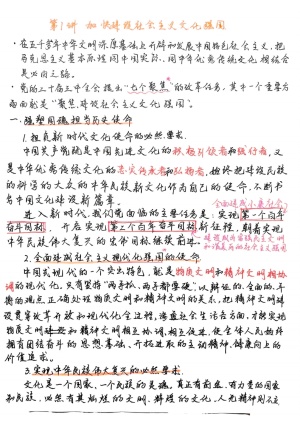 第1讲 加快建设社会主义文化强国
·在五千多年中华文明深厚基础上开辟和发展中国特色社会主义,把
马克思主义基本原理同中国实际、同中华优秀传统文化相结合
是必由之路。
·党的二十届三中全会提出"七个聚焦"的改革任务,其中一个重要方
面就是"聚焦建设社会主义文化强国"。
一、强国担当历史使命
1.担负新时代文化使命的必然要求.
中国共产党既是中国先进文化的积极引领者和践行者,又
是中华优秀传统文化的忠实传承者和弘扬者,始终把建设民族
的科学的大众的中华民族新文化作为自己的使命,不断书
写中国文化建设新篇章.
全面建成社会
进入新时代,我们党面临的主要任务是:实现第一个百年
奋斗目标,开启实现第二个百年奋斗目标新征程,朝着实现
中华民族伟大复兴的宏伟目标继续前进.
2.全面建成社会主义现代化强国的必然要求.
中国式现代化的一个突出特色,就是物质文明和精神文明相协
调的现代化,只有坚持"两手抓、两手都要硬",以辩证的、全面的、平
衡的观点正确处理物质文明和精神文明的关系,把精神文明建
设贯穿改革开放和现代化全过程,渗透社会生活各方面,才能实现
物质文明和精神文明相互协调、相互促进,使全体人民始终
拥有团结奋斗的思想基础、开拓进取的主动精神、健康向上的
价值追求。
3.实现中华民族伟大复兴的必然要求.
文化是一个国家、一个民族的灵魂,真正有前途、有力量的国家
和民族,必然有其灿烂的文明、辉煌的文化,人无精神则不立